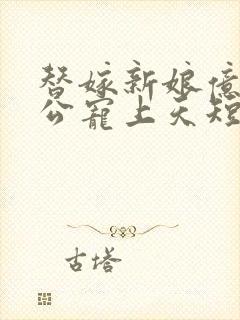 替嫁新娘億
公寵上天短
古塔